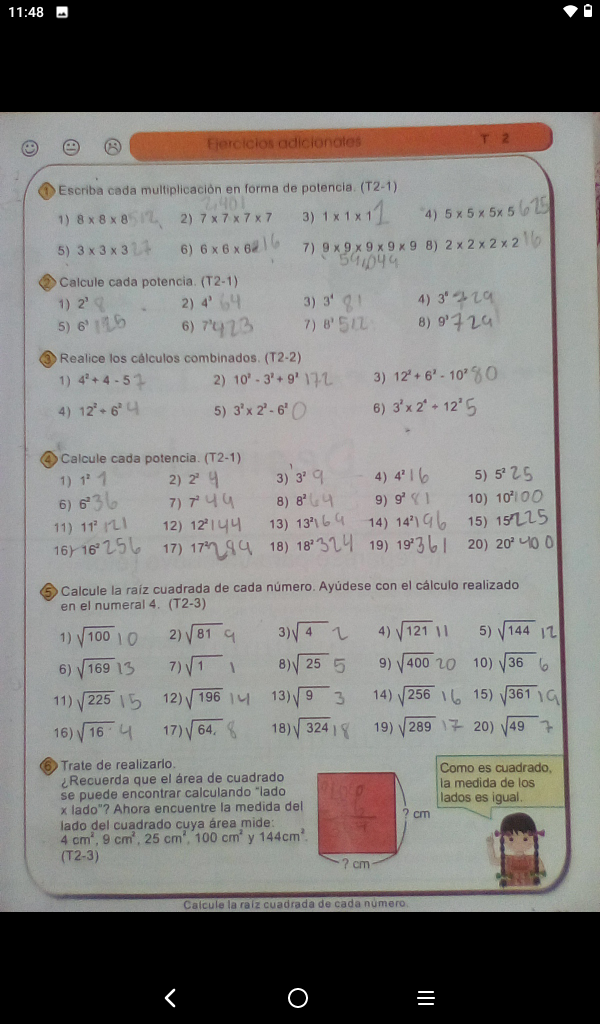 11:48
Ejercicios adicionales T 2
1 Escriba cada multiplicación en forma de potencia. (T2-1)
2,401
1) 8 x 8 x 8 512 2) 7 x 7 x 7 x 7 3) 1 x 1 x 1 1 4) 5 x 5 x 5x 5 625
5) 3 x 3 x 3 27 6) 6 x 6 x 6 216 7) 9 x 9 x 9 x 9 x 9 8) 2 x 2 x 2 x 2 16
59,049
2 Calcule cada potencia. (T2-1)
1) 2³ 8 2) 4³ 64 3) 3⁴ 81 4) 3⁶ 729
5) 6³ 6) 7³ 423 7) 8³ 512 8) 9³ 729
3 Realice los cálculos combinados. (T2-2)
1) 4² + 4 - 5 7 2) 10² - 3² + 9² 172 3) 12² + 6² - 10² 80
4) 12² ÷ 6² 4 5) 3² x 2² - 6² 0 6) 3² x 2⁴ ÷ 12² 5
4 Calcule cada potencia. (T2-1)
1) 1² 1 2) 2² 4 3) 3² 9 4) 4² 16 5) 5² 25
6) 6² 36 7) 7² 49 8) 8² 64 9) 9² 81 10) 10² 100
11) 11² 121 12) 12² 144 13) 13² 169 14) 14² 196 15) 15² 225
16) 16² 256 17) 17² 289 18) 18² 324 19) 19² 361 20) 20² 400
5 Calcule la raíz cuadrada de cada número. Ayúdese con el cálculo realizado
en el numeral 4. (T2-3)
1) √100 10 2) √81 9 3) √4 2 4) √121 11 5) √144 12
6) √169 13 7) √1 1 8) √25 5 9) √400 20 10) √36 6
11) √225 15 12) √196 14 13) √9 3 14) √256 16 15) √361 19
16) √16 4 17) √64, 8 18) √324 18 19) √289 17 20) √49 7
6 Trate de realizarlo.
¿Recuerda que el área de cuadrado
se puede encontrar calculando "lado
x lado"? Ahora encuentre la medida del
lado del cuadrado cuya área mide:
4 cm², 9 cm², 25 cm², 100 cm² y 144cm².
(T2-3)
? cm
? cm
Como es cuadrado,
la medida de los
lados es igual.
Calcule la raíz cuadrada de cada número.